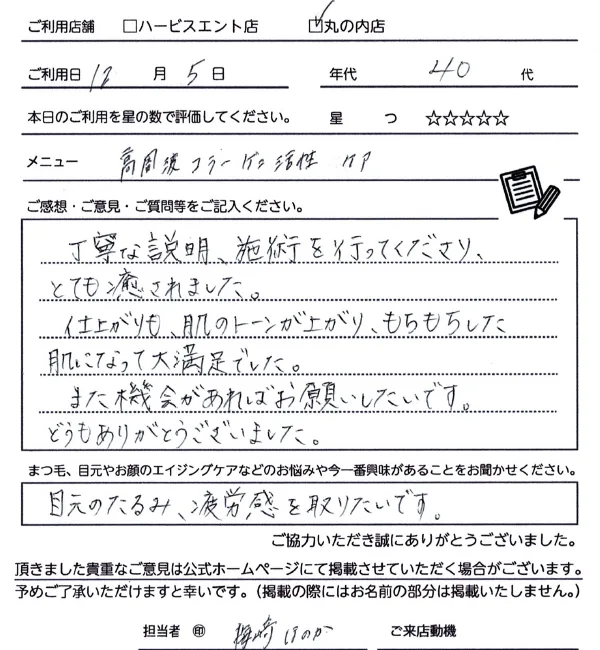 ご利用店舗 □ハービスエント店 ☑丸の内店
ご利用日 12月5日 年代 40代
本日のご利用を星の数で評価してください。 星 つ ☆☆☆☆☆
メニュー 高周波コラーゲン活性 ケア
ご感想・ご意見・ご質問等をご記入ください。
丁寧な説明、施術を行ってくださり、
とても癒されました。
仕上がりも、肌のトーンが上がり、もちもちした
肌になって大満足でした。
また機会があればお願いしたいです。
どうもありがとうございました。
まつ毛、目元やお顔のエイジングケアなどのお悩みや今一番興味があることをお聞かせください。
目元のたるみ、疲労感を取りたいです。
ご協力いただき誠にありがとうございました。
頂きました貴重なご意見は公式ホームページにて掲載させていただく場合がございます。
予めご了承いただけますと幸いです。（掲載の際にはお名前の部分は掲載いたしません。）
担当者 ㊞ 梅崎 ほのか ご来店動機